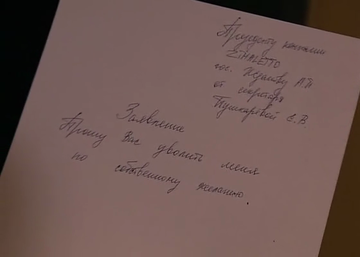 Президенту компании
ZIMALETTO
гос. Жданову А.П
от секретаря
Пушкаревой Е.В
Заявление
Прошу Вас уволить меня
по собственному желанию.